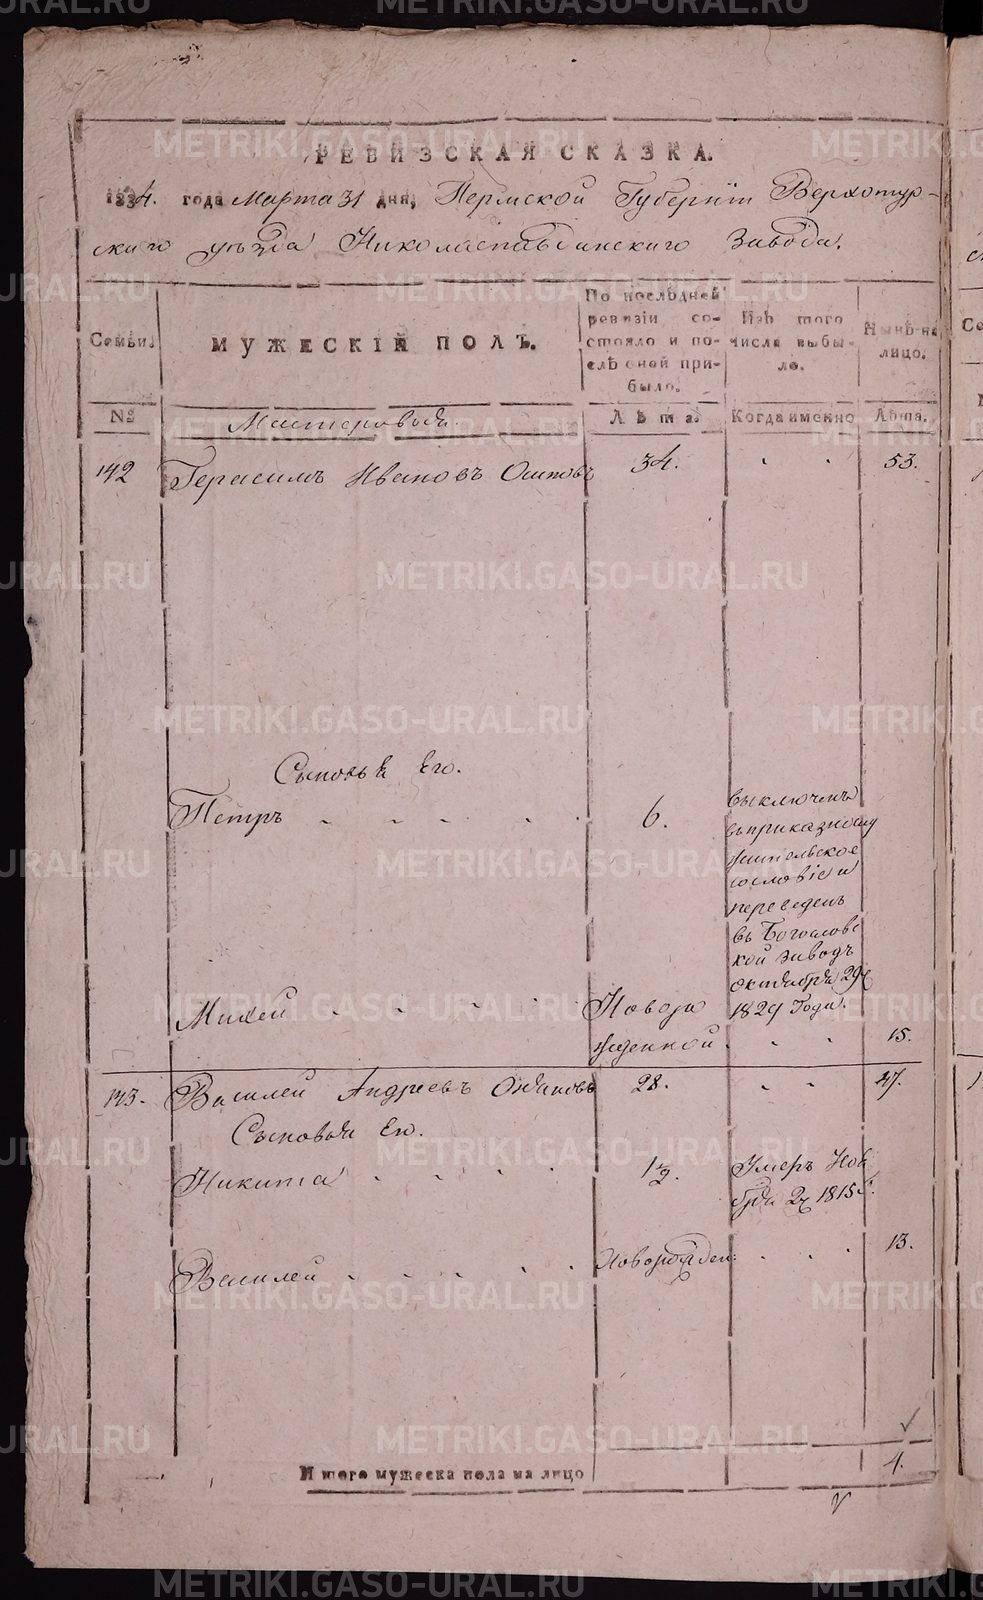 РЕВИЗСКАЯ СКАЗКА.
1834. года Марта 31 дня, Пермской Губернїи Верхотур-
скаго уѣзда Николаепавдинскаго Завода.
Семьи.
МУЖЕСКІЙ ПОЛЪ.
По послѣдней ревизіи со-стояло и по-слѣ оней при-было.
Изъ того числа выбы-ло.
Нынѣ на лицо.
№
Мастеровыя.
Лѣта.
Когда именно
Лѣта.
142 Герасимъ Ивановъ Осиповъ 34. 53.
Сыновья Его.
Петръ 6. выключенъ
въ приказно слу
жительское
сословіе и
переведенъ
въ Богословс
кой заводъ
октября 29
1829 Года.
Михей Новоро
жденной 15.
143. Василей Андреевъ 28. 47.
Сыновья Ег.
Никита 1½. Умеръ Ноя
бря 2 1815г.
Василей Новорожден: 13.
Итого мужеска пола на лицо 4.
METRIKI.GASO-URAL.RU